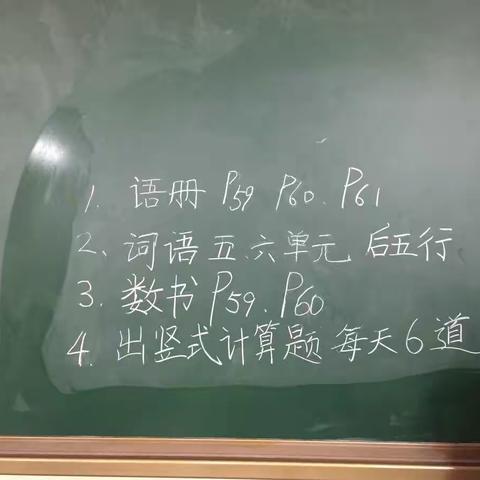 1. 语册 P59 P60. P61
2、词语 五、六单元 后五行
3. 数书 P59. P60
4. 出竖式计算题 每天6道